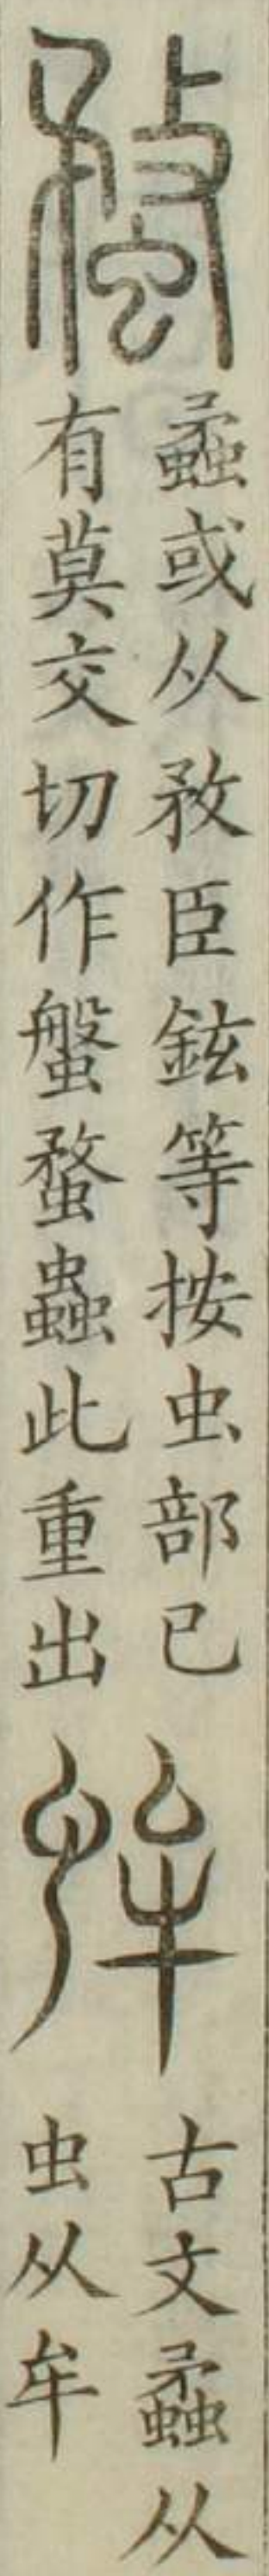 蝥
蟊或从敄臣鉉等按虫部已
有莫交切作螌蝥蟲此重出
蛑
古文蟊从
虫从牟